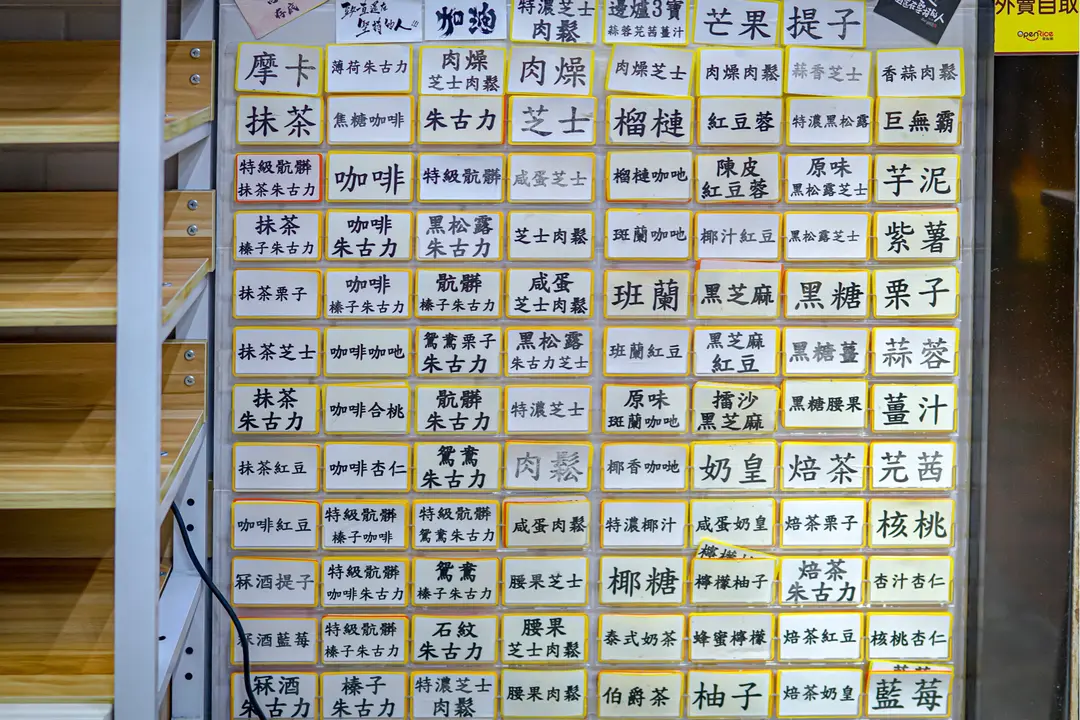 加油
特濃芝士
肉鬆
邊爐3寶
蒜蓉芫茜薑汁
芒果
提子
外賣自取
OpenRice
摩卡
薄荷朱古力
肉燥
芝士肉鬆
肉燥
肉燥芝士
肉燥肉鬆
蒜香芝士
香蒜肉鬆
抹茶
焦糖咖啡
朱古力
芝士
榴槤
紅豆蓉
特濃黑松露
巨無霸
特級骯髒
抹茶朱古力
咖啡
特級骯髒
咸蛋芝士
榴槤咖吔
陳皮
紅豆蓉
原味
黑松露芝士
芋泥
抹茶
榛子朱古力
咖啡
朱古力
黑松露
朱古力
芝士肉鬆
斑蘭咖吔
椰汁紅豆
黑松露芝士
紫薯
抹茶栗子
咖啡
榛子朱古力
骯髒
榛子朱古力
咸蛋
芝士肉鬆
班蘭
黑芝麻
黑糖
栗子
抹茶芝士
咖啡咖吔
鴛鴦栗子
朱古力
黑松露
朱古力芝士
班蘭紅豆
黑芝麻
紅豆
黑糖薑
蒜蓉
抹茶
朱古力
咖啡合桃
骯髒
朱古力
特濃芝士
原味
斑蘭咖吔
擂沙
黑芝麻
黑糖腰果
薑汁
抹茶紅豆
咖啡杏仁
鴛鴦
朱古力
肉鬆
椰香咖吔
奶皇
焙茶
芫茜
咖啡紅豆
特級骯髒
榛子咖啡
特級骯髒
鴛鴦朱古力
咸蛋肉鬆
特濃椰汁
咸蛋奶皇
焙茶栗子
核桃
冧酒提子
特級骯髒
咖啡朱古力
鴛鴦
榛子朱古力
腰果芝士
椰糖
檸檬柚子
焙茶
朱古力
杏汁杏仁
冧酒藍莓
特級骯髒
榛子朱古力
石紋
朱古力
腰果
芝士肉鬆
泰式奶茶
蜂蜜檸檬
焙茶紅豆
核桃杏仁
冧酒
朱古力
榛子
朱古力
特濃芝士
肉鬆
腰果肉鬆
伯爵茶
柚子
焙茶奶皇
藍莓